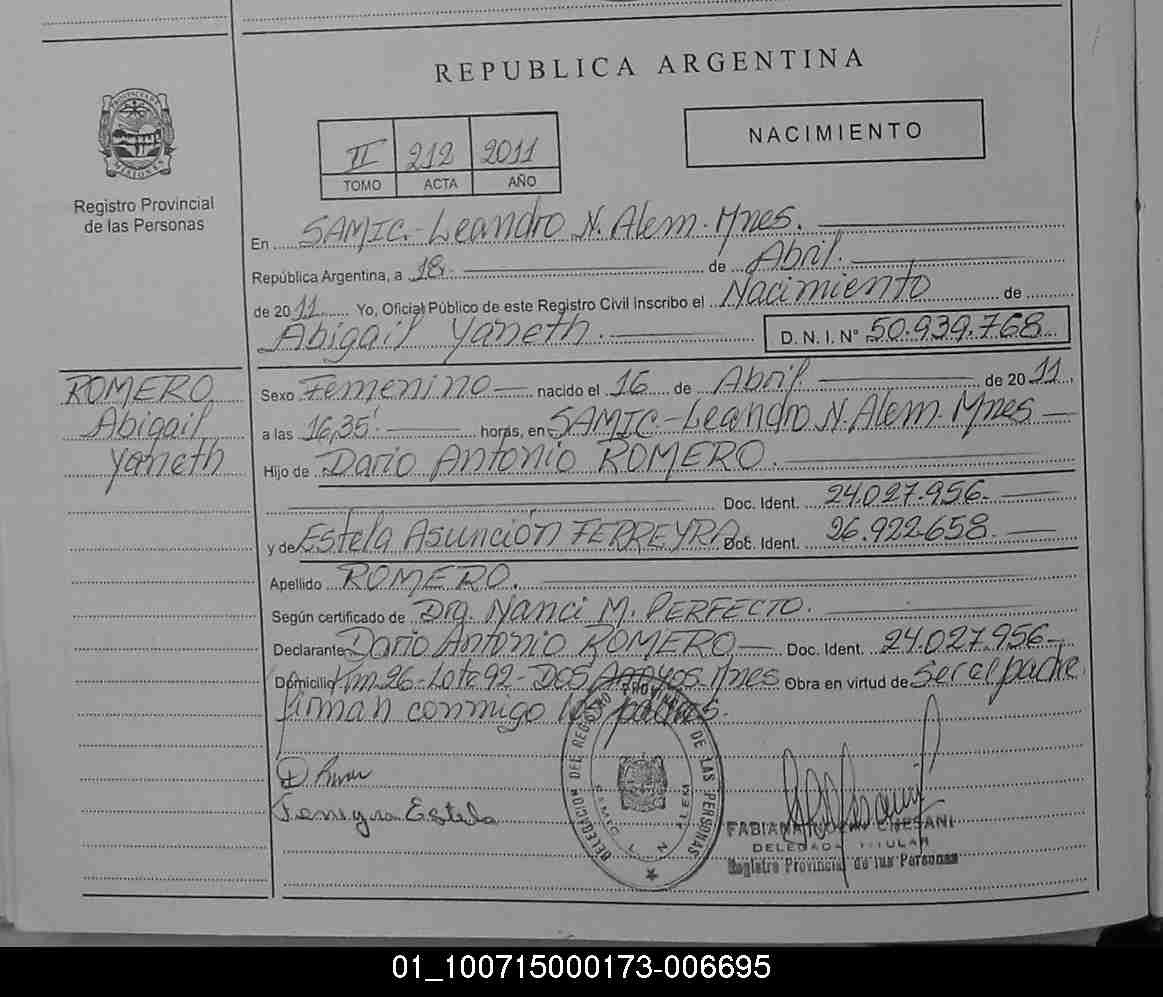 REPUBLICA ARGENTINA
PROVINCIA DE
MISIONES
Registro Provincial
de las Personas
II 212 2011
TOMO ACTA AÑO
NACIMIENTO
En SAMIC.-Leandro N. Alem-Mnes.
República Argentina, a 18. de Abril.
de 2011 Yo, Oficial Público de este Registro Civil Inscribo el Nacimiento de
Abigail Yaneth. D.N.I. N° 50.939.768
ROMERO
Abigail
Yaneth
Sexo Femenino nacido el 16 de Abril de 2011
a las 16,35' horas, en SAMIC-Leandro N. Alem-Mnes
Hijo de Dario Antonio ROMERO.
Doc. Ident. 24.027.956-
y de Estela Asunción FERREYRA Doc. Ident. 26.922.658.
Apellido ROMERO.
Según certificado de Dra. Nanci M. PERFECTO.
Declarante Dario Antonio ROMERO Doc. Ident. 24.027.956-
Domicilio Km 26-Lote 92-DOS Arroyos-Mnes Obra en virtud de ser el padre
firman conmigo los padres.
Ferreyra Estela
DELEGACION DEL REGISTRO PROVINCIAL DE LAS PERSONAS
SAMIC L N ALEM
DELEGADA TITULAR
Registro Provincial de las Personas
01_100715000173-006695